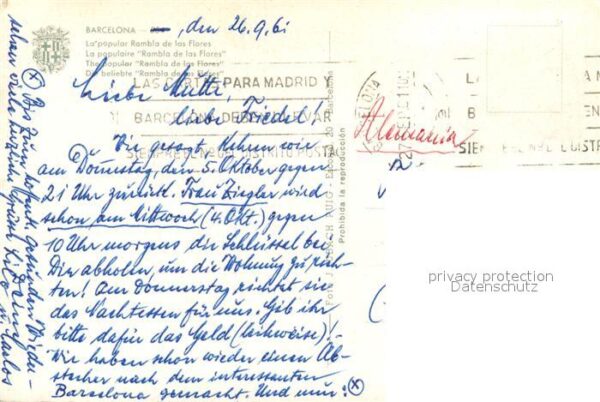 BARCELONA
den 26.9.61
La popular Rambla de las Flores
La populaire "Rambla de las Flores"
The popular "Rambla de las Flores"
Die beliebte "Rambla de las Flores"
LAS CARTAS PARA MADRID Y
BARCELONA DEBEN LLEVAR
SIEMPRE EL Nº DEL DISTRITO POSTAL
Liebe Mutti,
liebe Friedel!
Wie gesagt, kehren wir
am Donnerstag, den 5. Oktober gegen
21 Uhr zurück. Frau Ziegler wird
schon am Mittwoch (4. Okt.) gegen
10 Uhr morgens die Schlüssel bei
Dir abholen, um die Wohnung zu rich-
ten! Am Donnerstag richtet sie
das Nachtessen für uns. Gib ihr
bitte dafür das Geld (leihweise)!-
Wir haben schon wieder einen Ab-
stecher nach dem interessanten
Barcelona gemacht. Und nun: (x)
(x) Bis zum hoffentl. gesunden Wieder-
sehen viele herzliche Grüsse
Carlos
Prohibida la reproducción
Barcelona
Alemania
privacy protection
Datenschutz